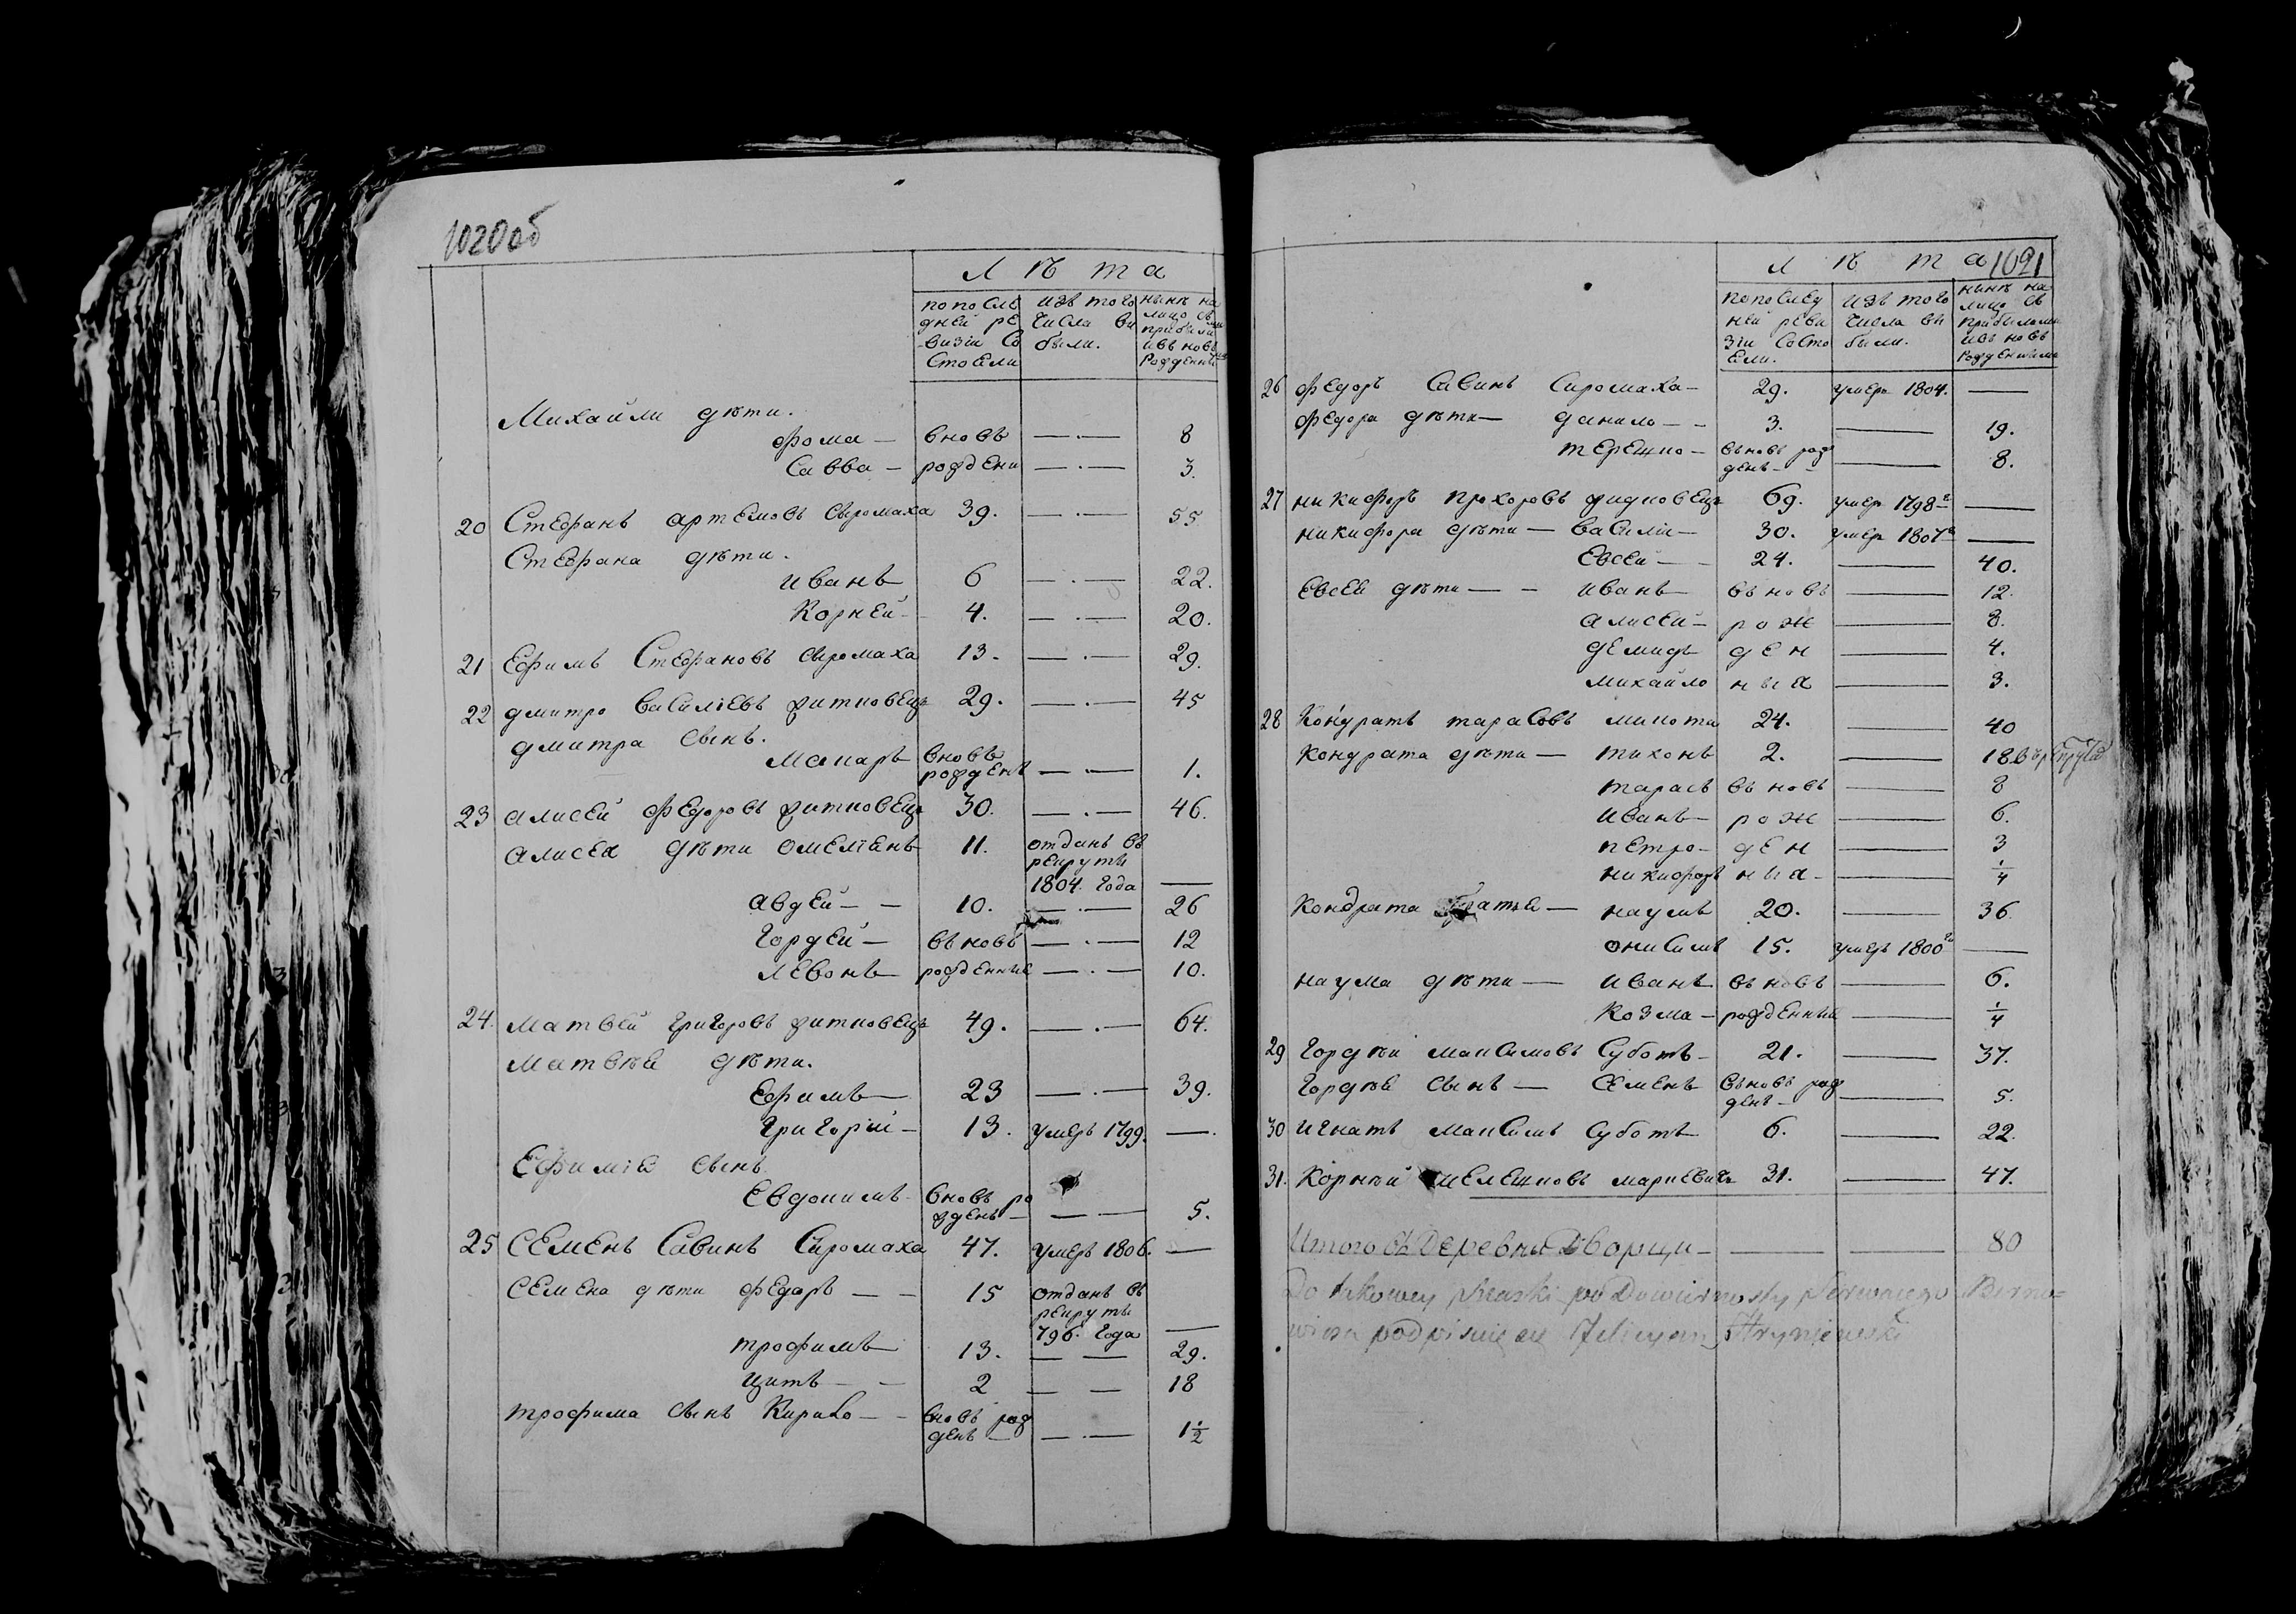 1020об
Л ѣ т а
по после изъ того нынѣ на
дней ре числа ви лицо съ
визіи со были. прибыли
стояли ивъ новъ рожденны
Михайли дѣти.
фома — вновь — . — 8
Савва — рождени — . — 3.
20 Стефанъ артемовъ Сыромаха 39. — . — 55
Стефана дѣти.
иванъ 6 — . — 22.
Корней — 4. — . — 20.
21 Ефимъ Стефановъ Сыромаха 13. — . — 29.
22 дмитро Василіевъ житковецъ 29. — . — 45
дмитра сынъ.
Макаръ вновь
рожденъ — . — 1.
23 алисей Федоровъ житковецъ 30. — . — 46.
алисея дѣти омеліянъ 11. отданъ въ
рекруты
1804. года —
авдей — — 10. — . — 26
Гордей — въновъ — . — 12
левонъ — рожденные — . — 10.
24. матвей григоровъ житковецъ 49. — . — 64.
матвѣя дѣти.
Ефимъ — 23 — . — 39.
григорій — 13. умеръ 1799. — .
Ефиміа сынъ
Евдокимъ вновь ро
жденъ — — . — 5.
25 Семенъ Савинъ Сыромаха 47. умеръ 1806. —
Семена дѣти федоръ — — 15 отданъ въ
рекруты
796. года —
трофимъ 13. — — 29.
титъ — — 2 — — 18
трофима сынъ Кирило — — вновь рож
денъ — — . — 1 1/2
Л ѣ т а 1021
по послед изъ того нынѣ на
ней реви числа ви лицо съ
зіи состо были. прибылыми
ели. ивъ новъ
рожденными
26 федоръ Савинъ Сыромаха — 29. умеръ 1804. —
федора дѣти — данило — — 3. — 19.
терешко — въновъ рож
денъ — — 8.
27 никифоръ прохоровъ жидковецъ 69. умеръ 1798 —
никифора дѣти — Васили — 30. умеръ 1807 —
Евсеи — — 24. — 40.
Евсеи дѣти — — иванъ въновъ — 12.
алисеи — рож — 8.
демидъ ден — 4.
михайло ныя — 3.
28 Кондратъ тарасовъ микита 24. — 40
Кондрата дѣти — тихонъ 2. — 18
тарасъ въновъ — 8
иванъ — рож — 6.
петро — ден — 3
никифоръ ныя — — 1/4
Кондрата братья — наумъ 20. — 36
онисимъ 15. умеръ 1800 —
наума дѣти — иванъ въновъ — 6.
Козма — рожденныи — 1/4
29 Гордѣй максимовъ Суботъ — 21. — 37.
Гордѣя сынъ — Семенъ въновъ рож
денъ — — 5.
30 игнатъ максимъ Суботъ — 6. — 22.
31. Корнѣй мелешковъ маркевичъ 31. — 47.
Итого въ Деревни Дворци — — — 80
Do takowey skazki po Dowiernosty
podpisuię się Felicyan Hryniewski